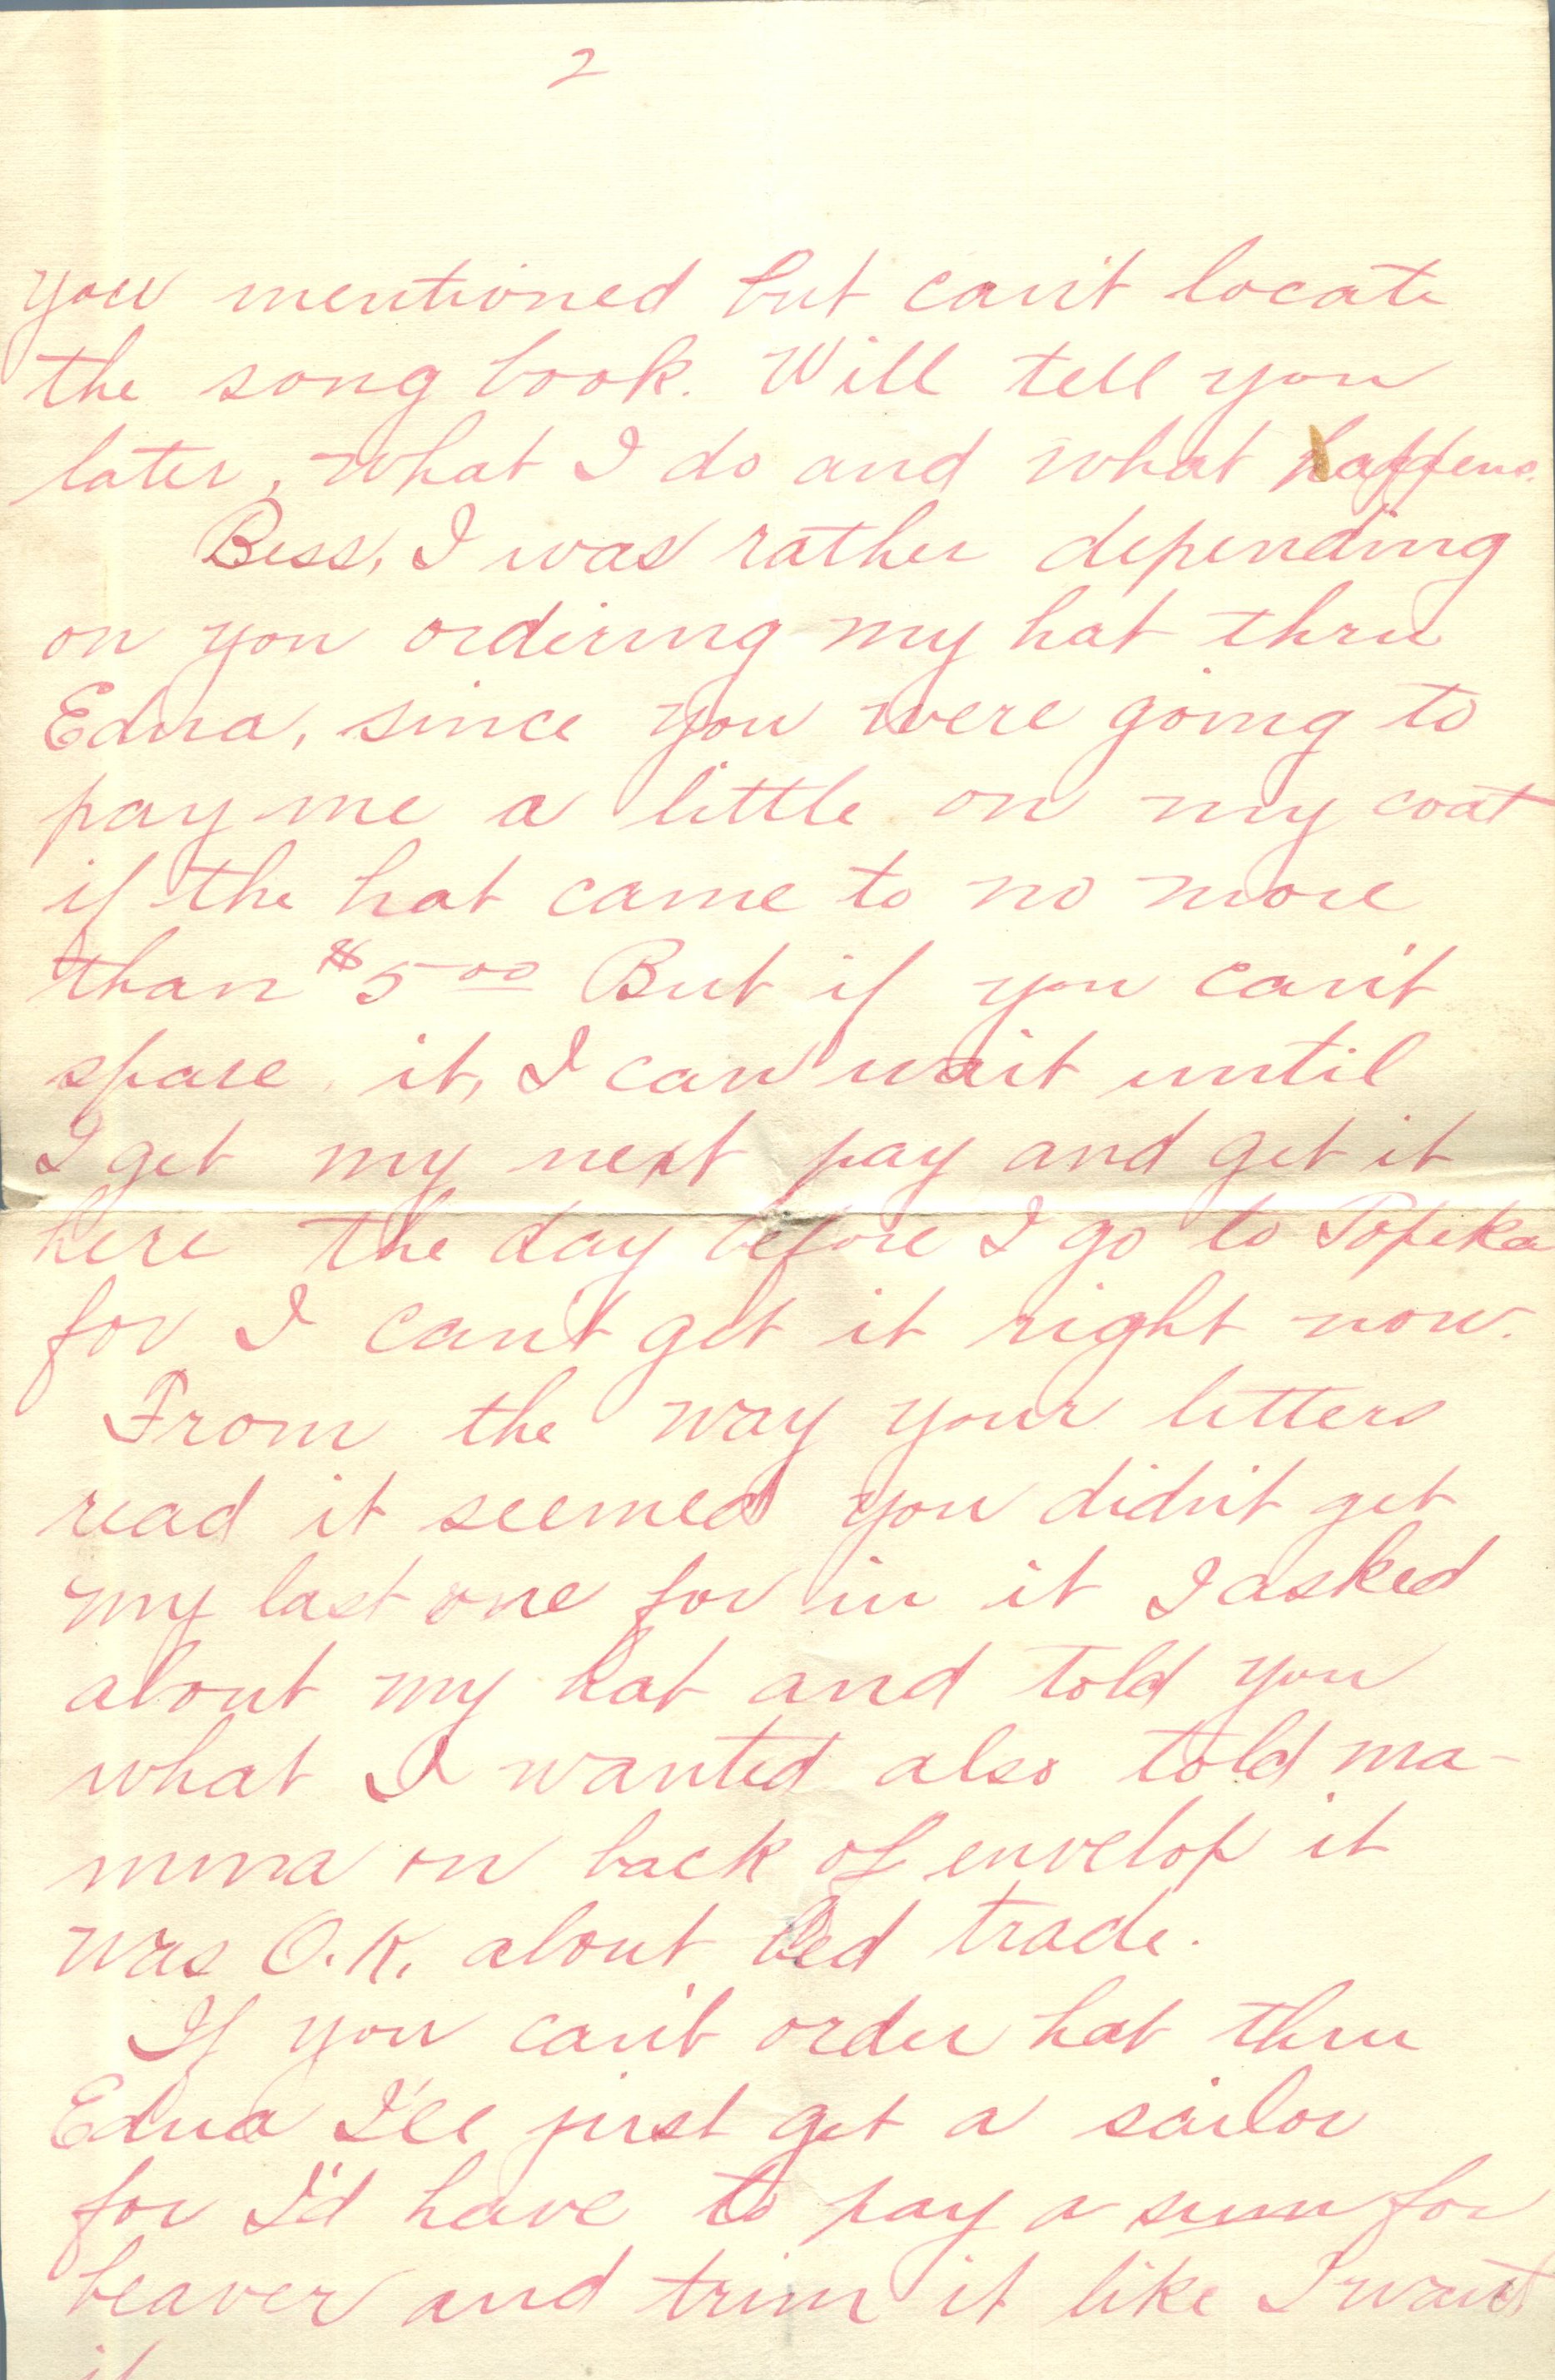 2
you mentioned but can't locate
the song book. Will tell you
later, what I do and what happens.
Bess, I was rather depending
on you ordering my hat thru
Edna, since you were going to
pay me a little on my coat
if the hat came to no more
than $5 00 But if you can't
spare it, I can wait until
I get my next pay and get it
here the day before I go to Topeka
for I can't get it right now.
From the way your letters
read it seemed you didn't get
my last one for in it I asked
about my hat and told you
what I wanted also told ma-
mma on back of envelop it
was O.K. about bed trade.
If you can't order hat thru
Edna I'll just get a sailor
for I'd have to pay a sum for
beaver and trim it like I want
it